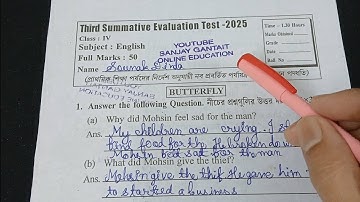 Third Summative Evaluation Test -2025
Class : IV
Subject : English
Full Marks : 50
Name
Time : 1.30 Hours
Marks Obtained
Grade
Date
Roll No
YOUTUBE
SANJAY GANTAIT
ONLINE EDUCATION
BUTTERFLY
1. Answer the following Question. নীচের প্রশ্নগুলির উত্তর
(a) Why did Mohsin feel sad for the man?
Ans. My children are crying. I
food for the He broken down
Mohsin feel sad for the man
(b) What did Mohsin give the thief?
Ans. Mohsin give the thif He gave him
to started a business